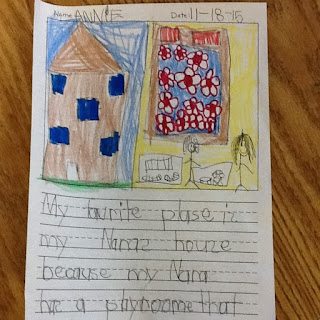 Name ANNIE Date: 11-18-15
My favrite plase iz
my Naraz houze
because my Nara
hve a playroome that